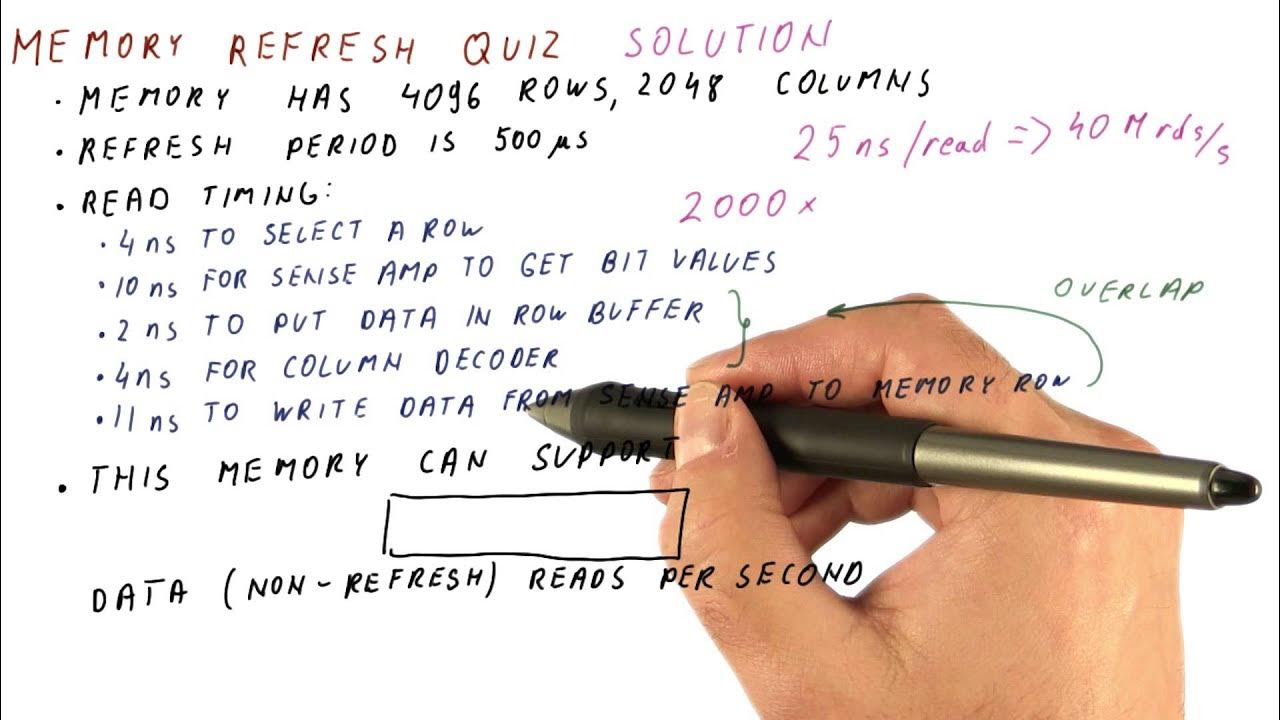 MEMORY REFRESH QUIZ SOLUTION
• MEMORY HAS 4096 ROWS, 2048 COLUMNS
• REFRESH PERIOD IS 500 μs
25 ns/read => 40 M rds/s
• READ TIMING:
2000 ×
• 4 ns TO SELECT A ROW
• 10 ns FOR SENSE AMP TO GET BIT VALUES
OVERLAP
• 2 ns TO PUT DATA IN ROW BUFFER
• 4 ns FOR COLUMN DECODER
• 11 ns TO WRITE DATA FROM SENSE AMP TO MEMORY ROW
• THIS MEMORY CAN SUPPORT
DATA (NON-REFRESH) READS PER SECOND